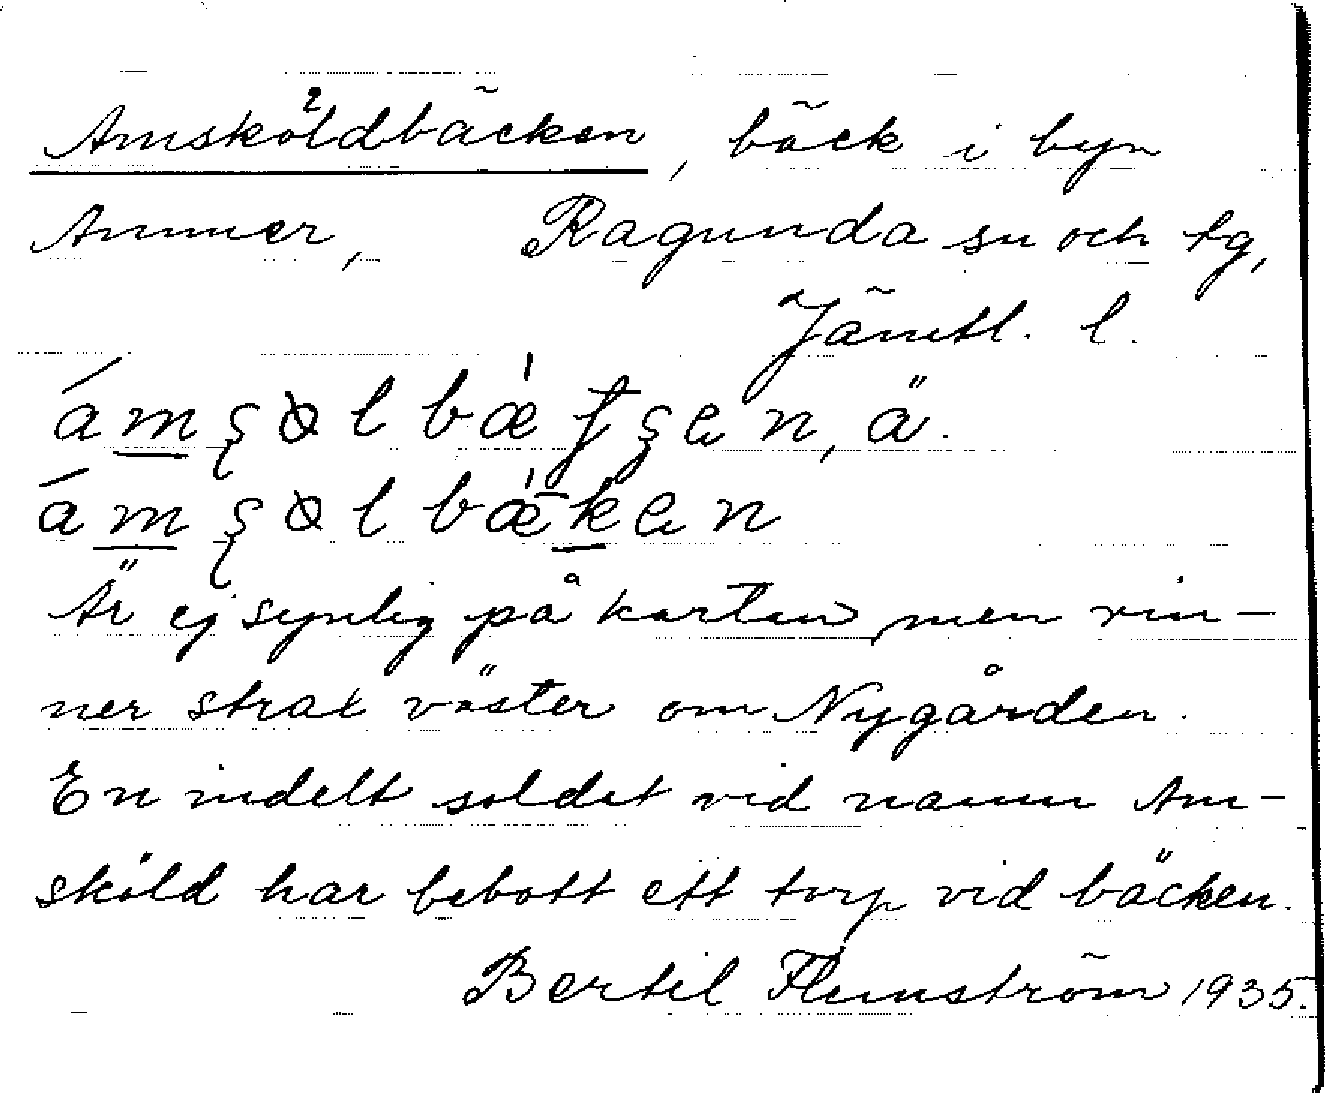 Amsköldbäcken, bäck i byn
Ammer, Ragunda sn och tg,
Jämtl. l.
Är ej synlig på kartan, men rin-
ner strax väster om Nygården.
En indelt soldat vid namn Am-
sköld har bebott ett torp vid bäcken.
Bertil Flemström 1935.